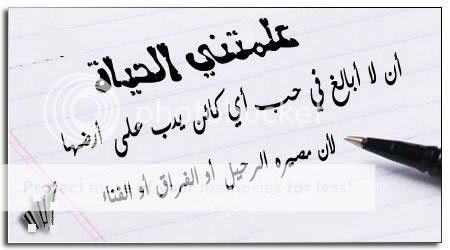 علمتني الحياة
أن لا أبالغ في حب أي كائن يدب على أرضها
photobucket
لأن مصيره الرحيل أو الفراق أو الفناء
Protect more of your memories for less!